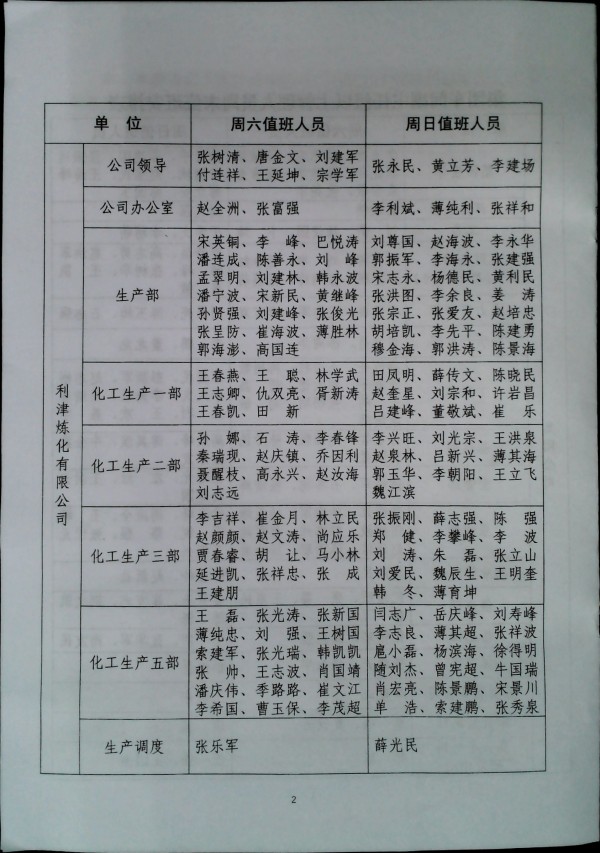 单 位 周六值班人员 周日值班人员
利津炼化有限公司
公司领导
张树清、唐金文、刘建军
付连祥、王延坤、宗学军
张永民、黄立芳、李建场
公司办公室
赵全洲、张富强
李利斌、薄纯利、张祥和
生产部
宋英铜、李 峰、巴悦涛
潘连成、陈善永、刘 峰
孟翠明、刘建林、韩永波
潘宁波、宋新民、黄继峰
孙贤强、刘建峰、张俊光
张呈防、崔海波、薄胜林
郭海澎、高国连
刘尊国、赵海波、李永华
郭振军、李海永、张建强
宋志永、杨德民、黄利民
张洪图、李余良、姜 涛
张宗正、张爱友、赵培忠
胡培凯、李先平、陈建勇
穆金海、郭洪涛、陈景海
化工生产一部
王春燕、王 聪、林学武
王志卿、仇双亮、胥新涛
王春凯、田 新
田凤明、薛传文、陈晓民
赵奎星、刘宗和、许岩昌
吕建峰、董敬斌、崔 乐
化工生产二部
孙 娜、石 涛、李春锋
秦瑞现、赵庆镇、乔因利
聂醒枝、高永兴、赵汝海
刘志远
李兴旺、刘光宗、王洪泉
赵泉林、吕新兴、薄其海
郭玉华、李朝阳、王立飞
魏江滨
化工生产三部
李吉祥、崔金月、林立民
赵颜颜、赵文涛、尚应乐
贾春睿、胡 让、马小林
延进凯、张祥忠、张 成
王建朋
张振刚、薛志强、陈 强
郑 健、李攀峰、李 波
刘 涛、朱 磊、张立山
刘爱民、魏辰生、王明奎
韩 冬、薄育坤
化工生产五部
王 磊、张光涛、张新国
薄纯忠、刘 强、王树国
索建军、张光瑞、韩凯凯
张 帅、王志波、肖国靖
潘庆伟、季路路、崔文江
李希国、曹玉保、李茂超
闫志广、岳庆峰、刘寿峰
李志良、薄其超、张祥波
扈小磊、杨滨海、徐得明
随刘杰、曾宪超、牛国瑞
肖宏亮、陈景鹏、宋景川
单 浩、索建鹏、张秀泉
生产调度
张乐军
薛光民
2